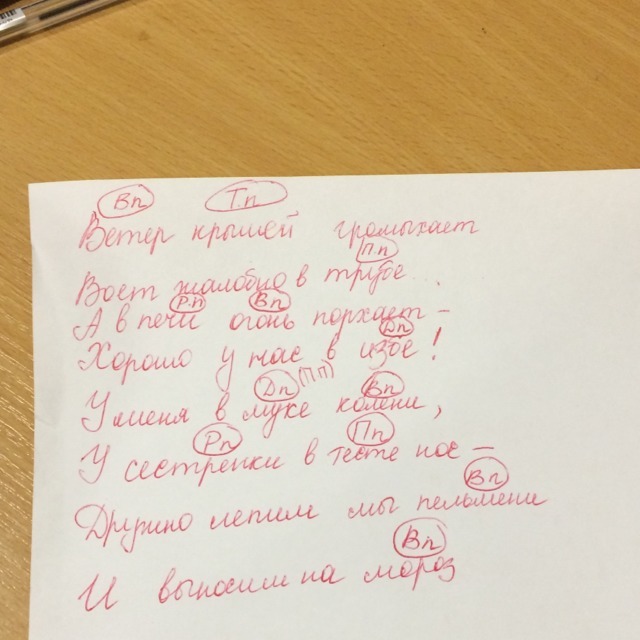 Вп Т.п
Ветер крышей громыхает
П.п
Воет жалобно в трубе...
Р.п Вп
А в печи огонь порхает –
Дп
Хорошо у нас в избе!
Дп (Пп) Вп
У меня в муке колени,
Рп Пп
У сестрёнки в тесте нос –
Вп
Дружно лепим мы пельмени
Вп
И выносим на мороз